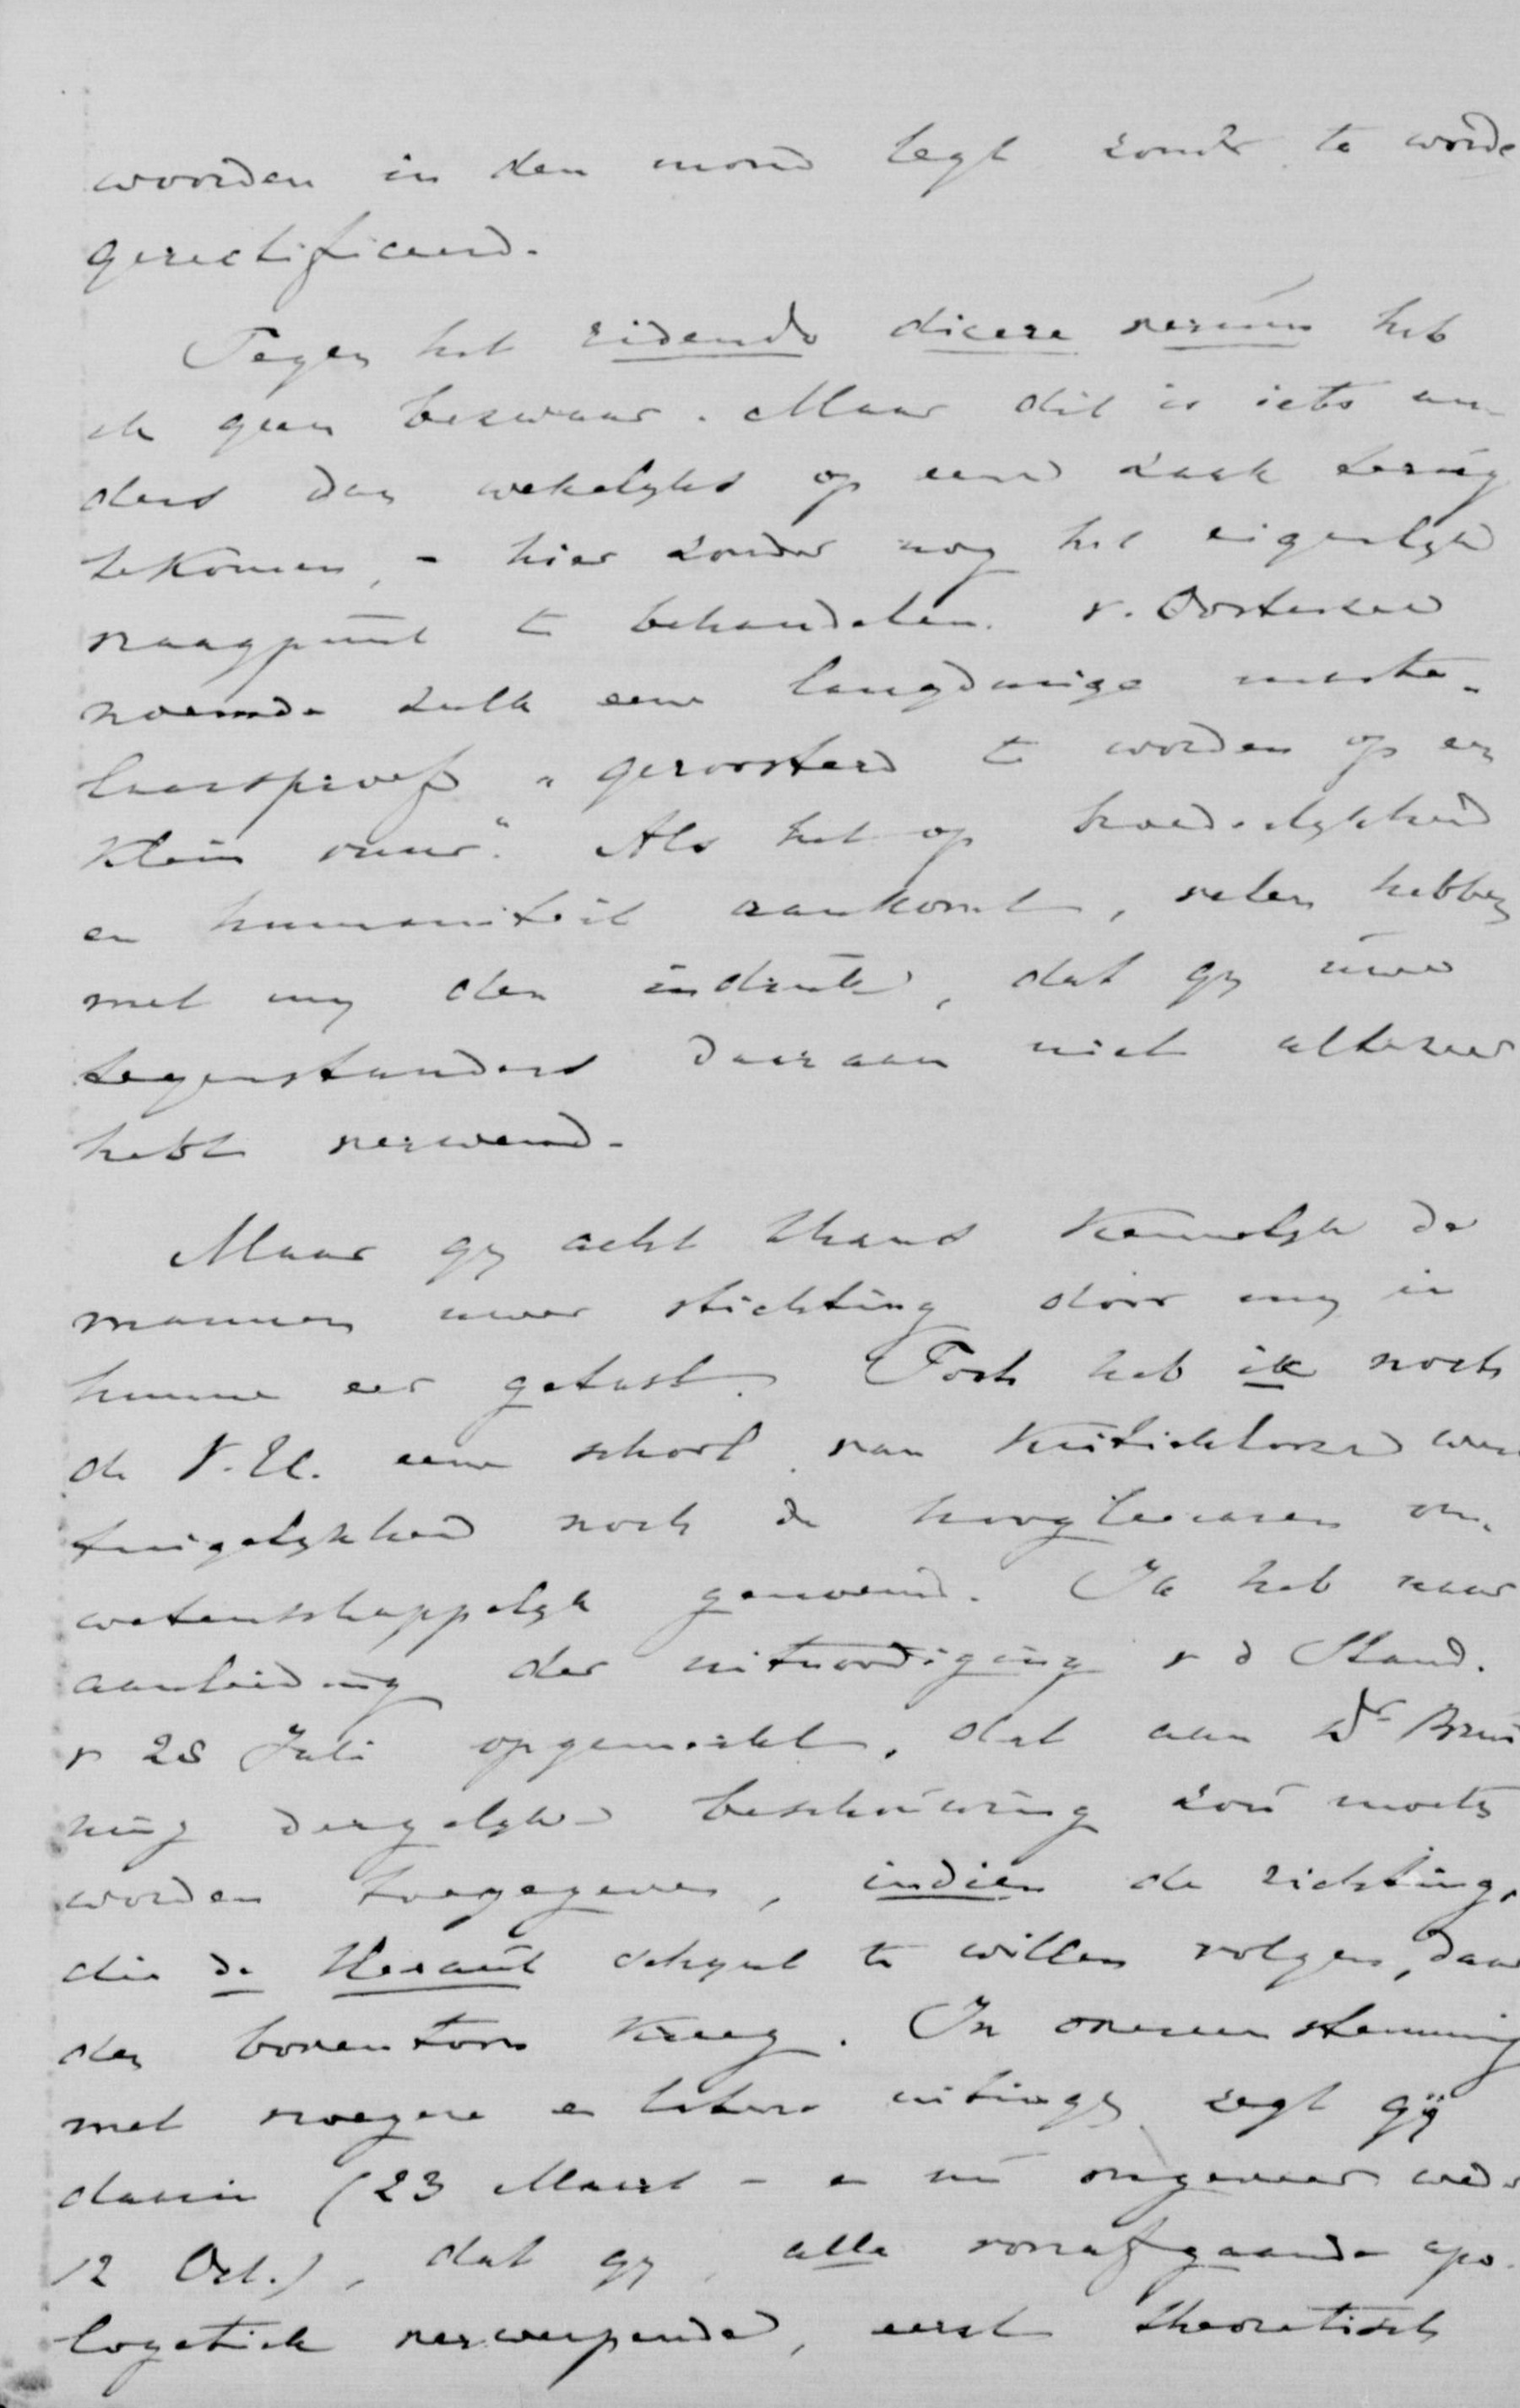 woorden in den mond legt zonder te worde
gerectificeerd.
Tegen het ridendo dicere verum heb
ik geen bezwaar. Maar dit is iets an-
ders dan wekelyks op eene zaak terug
tekomen, - hier zonder nog het eigenlyke
vraagpunt te behandelen. v. Oosterzee
noemde zulk eene langdurige marte-
laarsproef "geroosterd te worden op een
klein vuur". Als het op broederlykheid
en humaniteit aankomt, velen hebben
met my den indruk, dat gy uwe
tegenstanders daaraan niet alzeer
hebt verwend.
Maar gy acht thans kennelyk de
mannen uwer stichting door my in
hunne eer getast. Toch heb ik noch
de V.U. eene school van kritieklooze wer
tuigelykheid noch de hoogleeraren on-
wetenschappelyk genoemd. Ik heb naar
aanleiding der uitnoodiging v d Stand.
v 28 Juli opgemerkt, dat aan Dr Brui
ning dergelyke beschouwing zou moeten
worden toegegeven, indien de richting,
die de Heraut schynt te willen volgen, daar
den boventoon kreeg. In overeenstemming
met vroegere en latere uitingen zegt gÿ
daarin (23 Maart - en nu ongeveer weder
12 Oct.), dat gy, alle voorafgaande apo-
logetiek verwerpende, eerst theoretisch